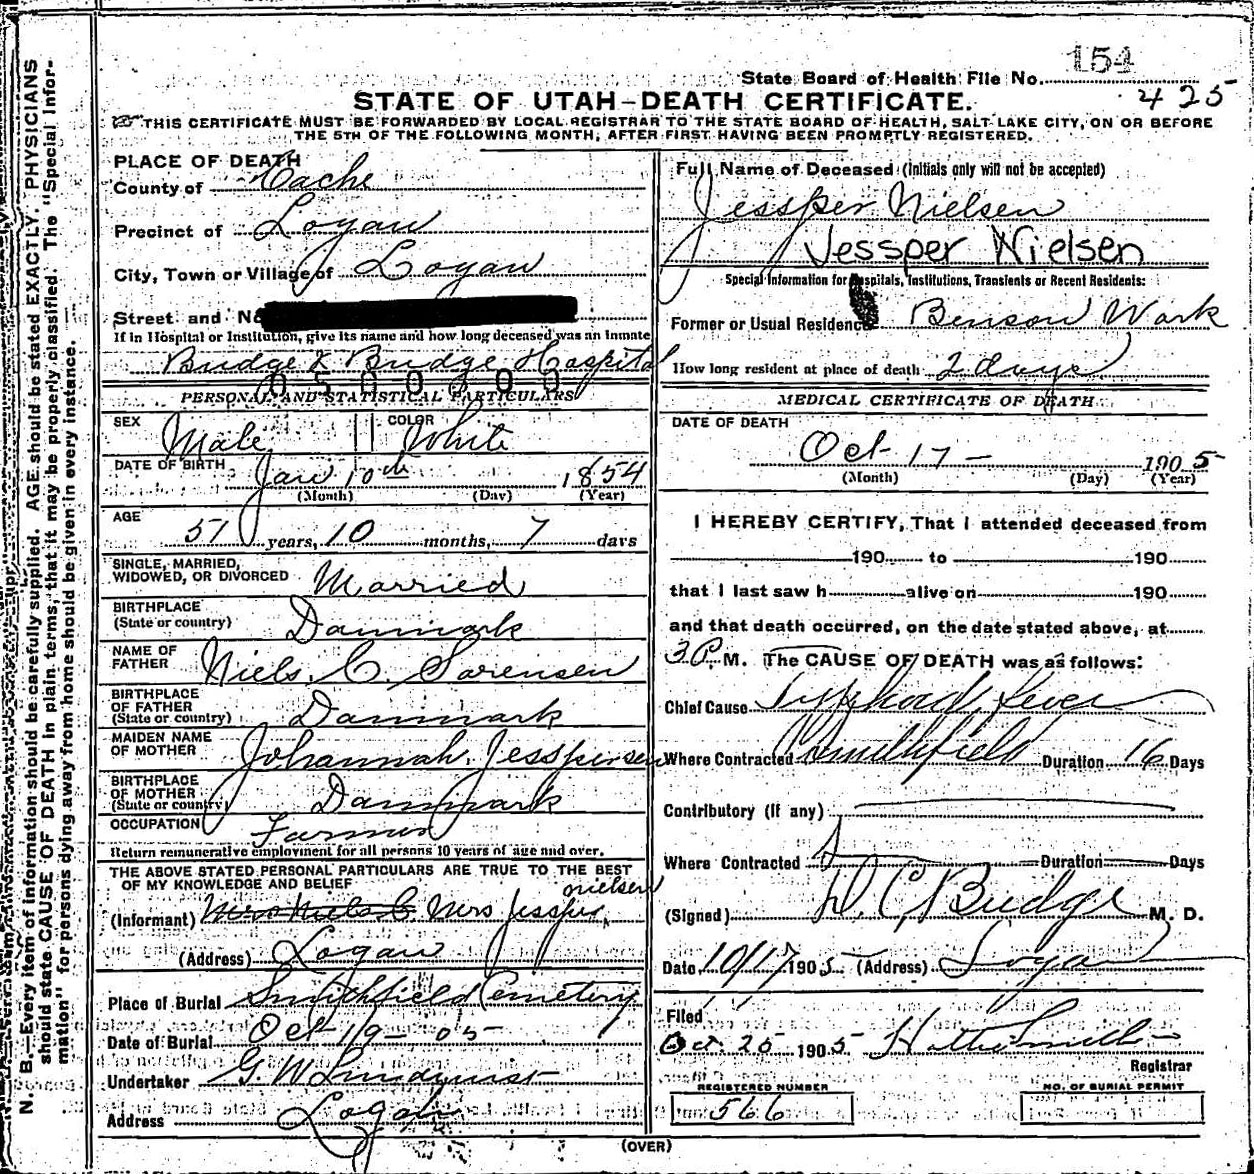 154
State Board of Health File No.
425
STATE OF UTAH-DEATH CERTIFICATE.
THIS CERTIFICATE MUST BE FORWARDED BY LOCAL REGISTRAR TO THE STATE BOARD OF HEALTH, SALT LAKE CITY, ON OR BEFORE
THE 5TH OF THE FOLLOWING MONTH, AFTER FIRST HAVING BEEN PROMPTLY REGISTERED.
N. B.—Every item of information should be carefully supplied. AGE should be stated EXACTLY. PHYSICIANS
should state CAUSE OF DEATH in plain terms, that it may be properly classified. The "Special Infor-
mation" for persons dying away from home should be given in every instance.
PLACE OF DEATH
County of Cache
Precinct of Logan
City, Town or Village of Logan
Street and No
If in Hospital or Institution, give its name and how long deceased was an Inmate
Budge & Budge Hospital
0500600
PERSONAL AND STATISTICAL PARTICULARS
SEX Male COLOR White
DATE OF BIRTH Jan 10th 1854
(Month) (Day) (Year)
AGE
51 years, 10 months, 7 days
SINGLE, MARRIED,
WIDOWED, OR DIVORCED Married
BIRTHPLACE
(State or country) Danmark
NAME OF
FATHER Niels. C. Sorensen
BIRTHPLACE
OF FATHER
(State or country) Danmark
MAIDEN NAME
OF MOTHER Johannah. Jesspersen
BIRTHPLACE
OF MOTHER
(State or country) Danmark
OCCUPATION Farmer
Return remunerative employment for all persons 10 years of age and over.
THE ABOVE STATED PERSONAL PARTICULARS ARE TRUE TO THE BEST
OF MY KNOWLEDGE AND BELIEF
nielsen
(Informant) Mrs Niels C. Mrs Jessper
(Address) Logan
Place of Burial Smithfield Cemetery
Date of Burial Oct 19 - 05 -
Undertaker G. W Lindquist
Address Logan
Full Name of Deceased (Initials only will not be accepted)
Jessper Nielsen
Jessper Nielsen
Special Information for Hospitals, Institutions, Transients or Recent Residents:
Former or Usual Residence Benson Wark
How long resident at place of death 2 days
MEDICAL CERTIFICATE OF DEATH
DATE OF DEATH
Oct- 17 - 1905
(Month) (Day) (Year)
I HEREBY CERTIFY, That I attended deceased from
190 to 190
that I last saw h alive on 190
and that death occurred, on the date stated above, at
3 P. M. The CAUSE OF DEATH was as follows:
Chief Cause Typhoid fever
Where Contracted Smithfield Duration 16 Days
Contributory (If any)
Where Contracted Duration Days
(Signed) D. C. Budge M. D.
Date 10/17 1905 (Address) Logan
Filed
Oct. 25 1905
Registrar
REGISTERED NUMBER
566
NO. OF BURIAL PERMIT
(OVER)